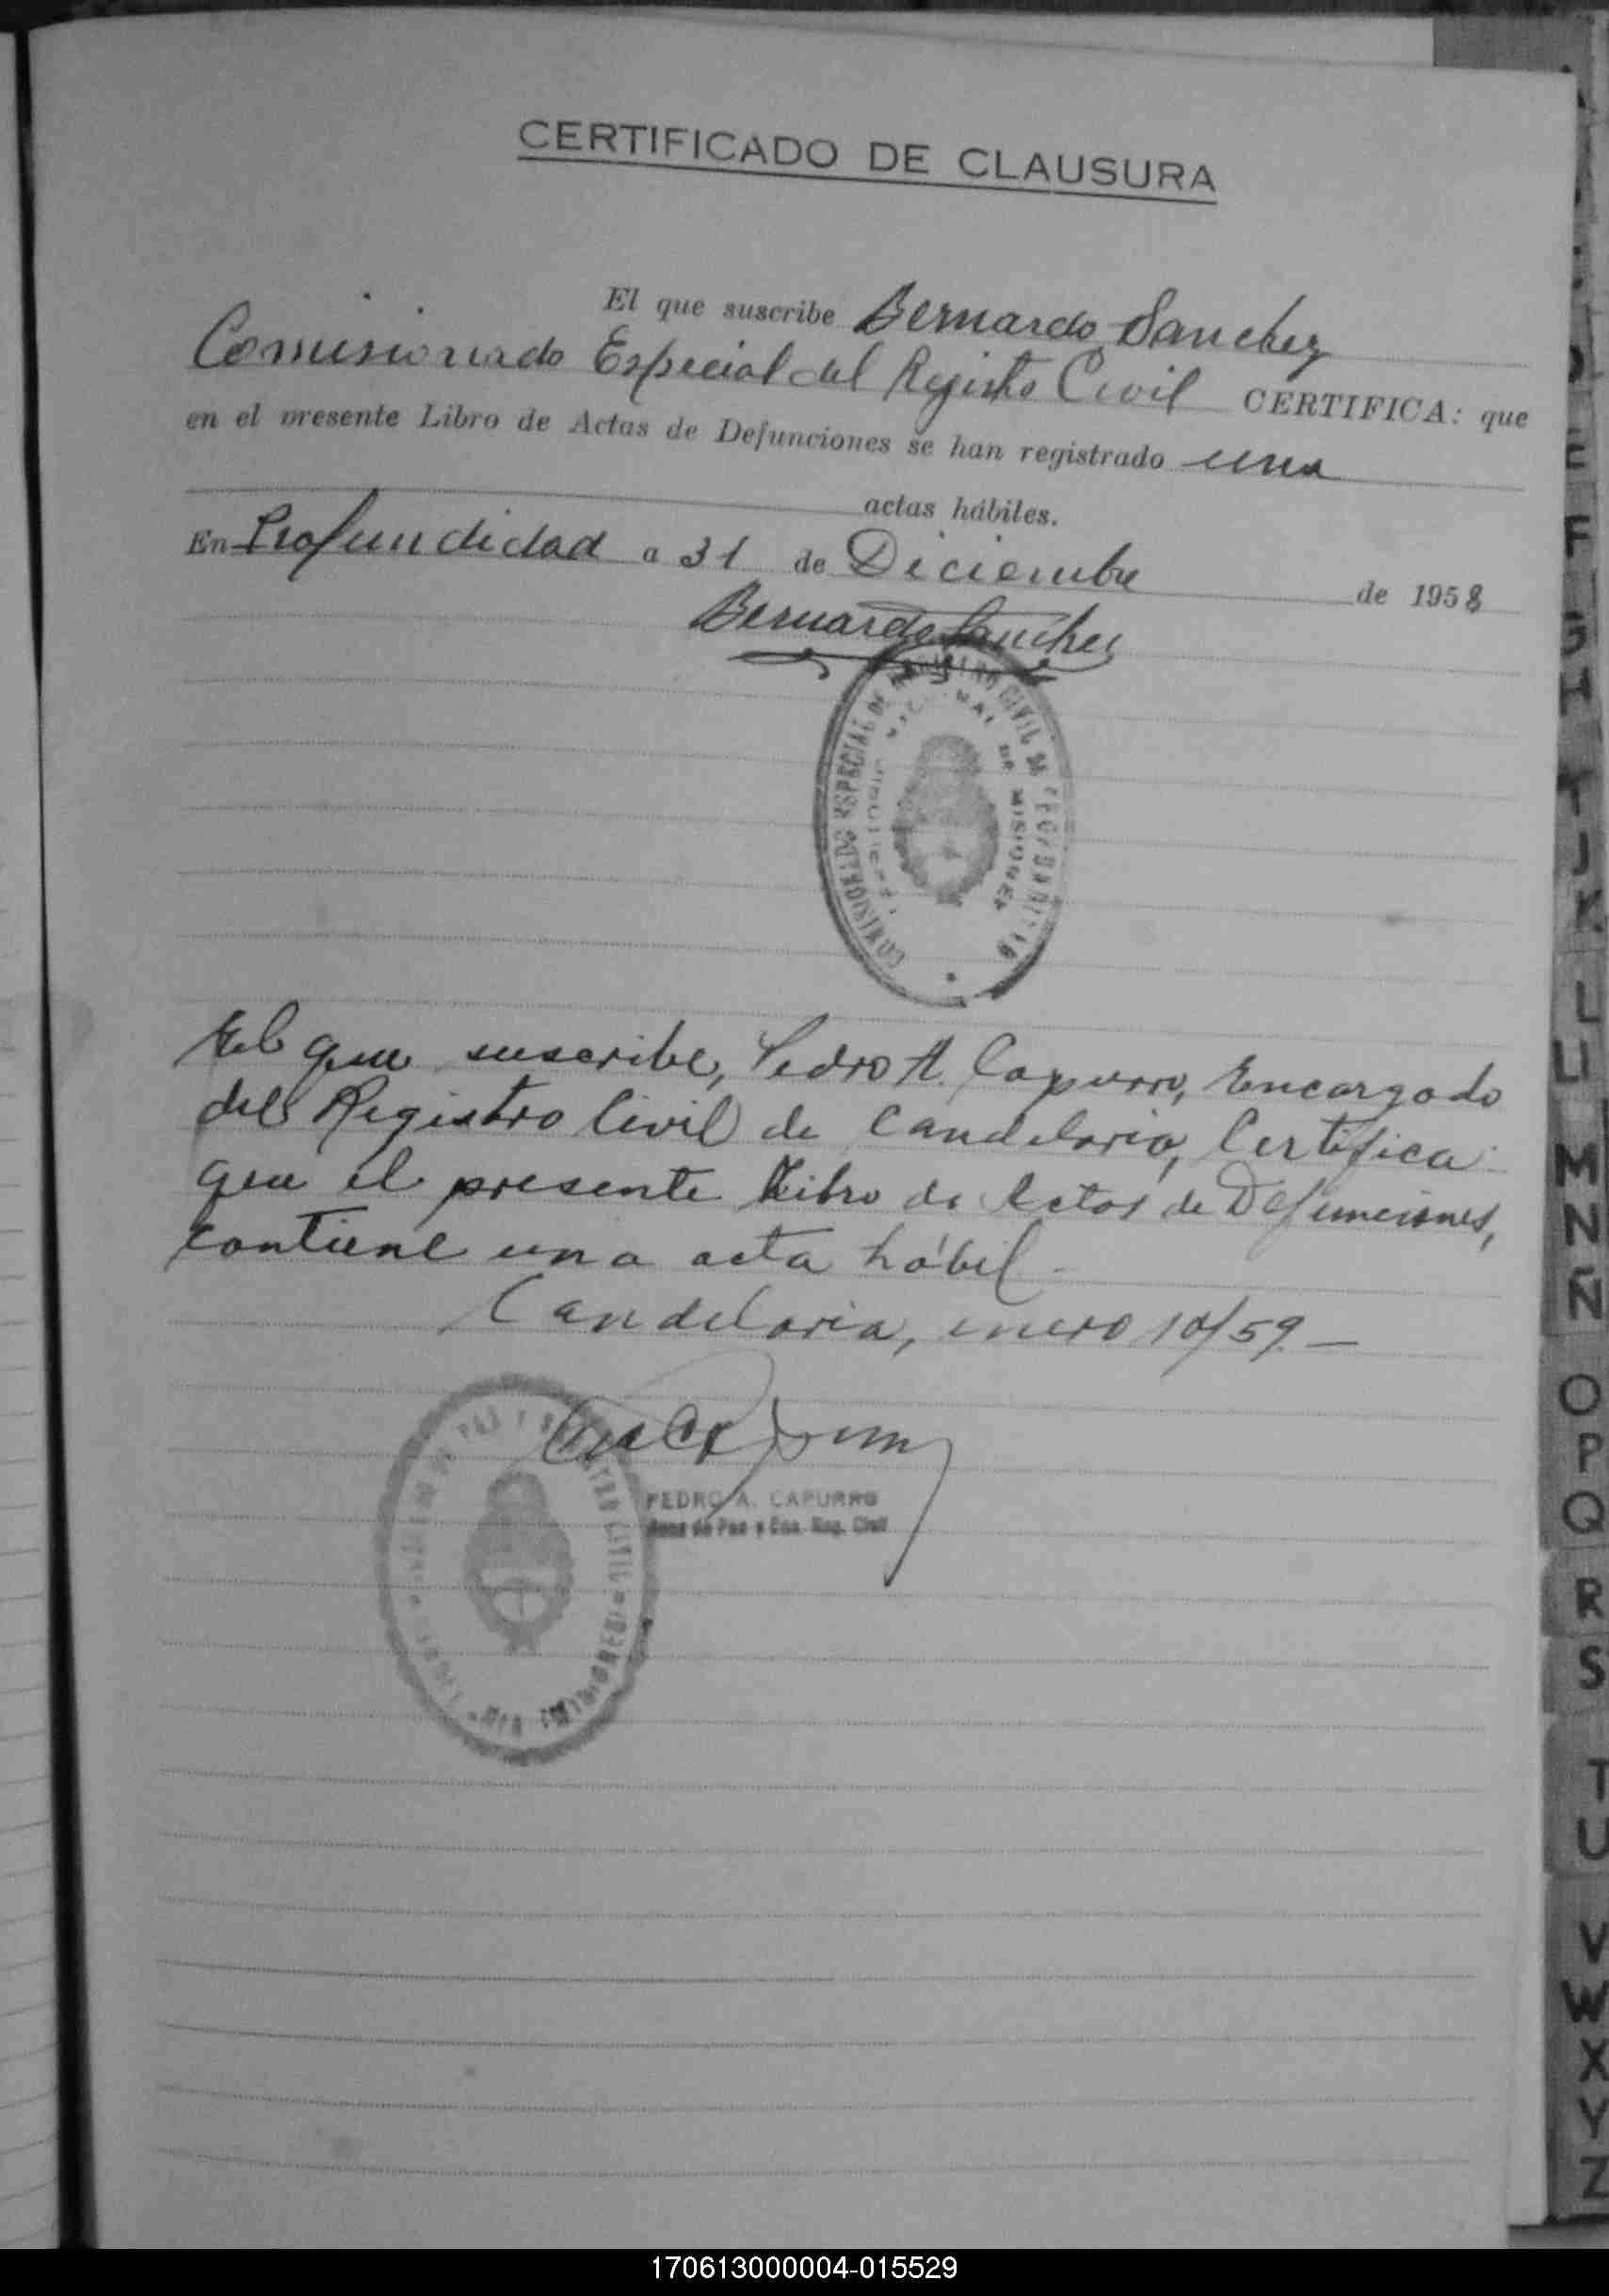 CERTIFICADO DE CLAUSURA
El que suscribe Bernardo Sanchez
Comisionado Especial del Registro Civil CERTIFICA: que
en el presente Libro de Actas de Defunciones se han registrado una
actas hábiles.
En Profundidad a 31 de Diciembre de 1958
Bernardo Sanchez
COMISIONADO ESPECIAL DE REGISTRO CIVIL DE PROFUNDIDAD
DE MISIONES
El que suscribe, Pedro A. Capurro, Encargado
del Registro Civil de Candelaria, Certifica
que el presente Libro de Actas de Defunciones,
contiene una acta hábil.
Candelaria, enero 10/59.—
PEDRO A. CAPURRO
Juez de Paz y Enc. Reg. Civil
D
E
F
G
H
I
J
K
L
LL
M
N
Ñ
O
P
Q
R
S
T
U
V
W
X
Y
Z
170613000004-015529